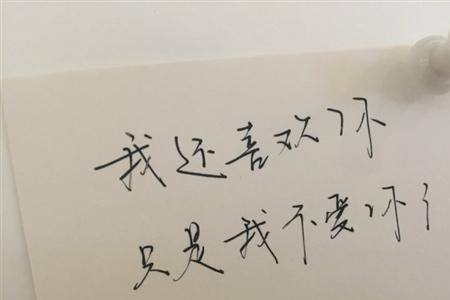 我还喜欢你
只是我不要你了